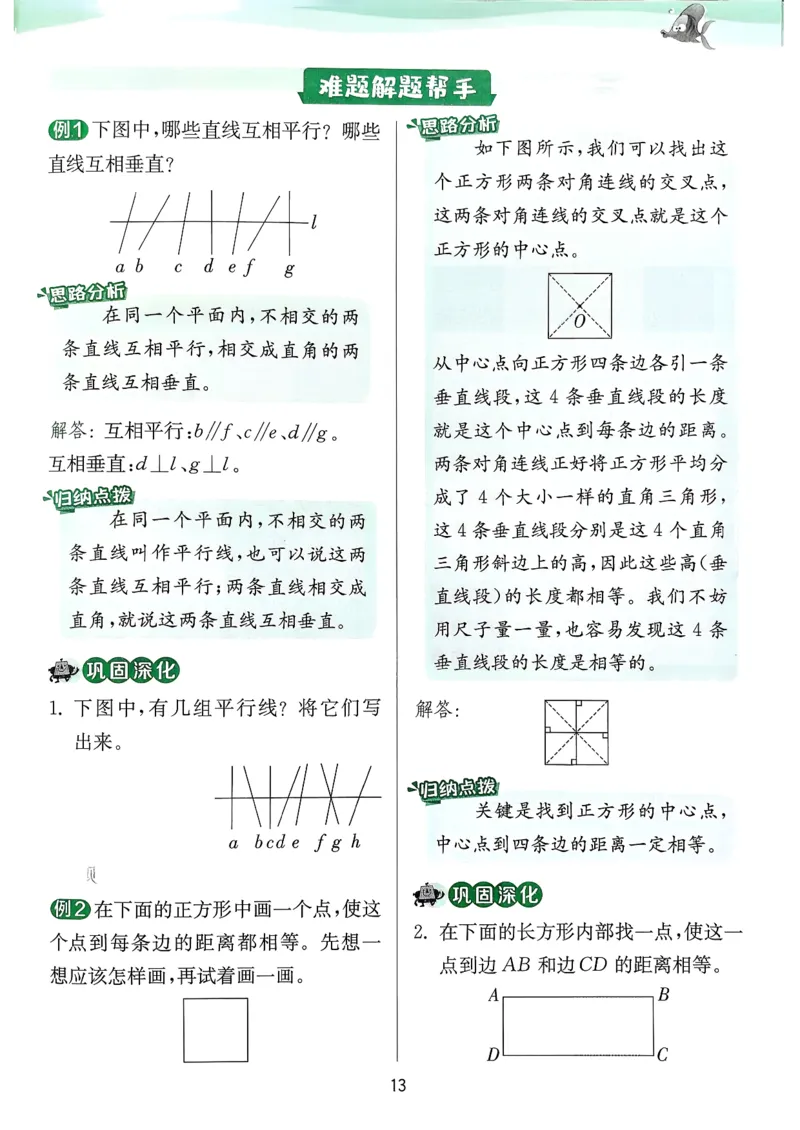 难题解题帮手
例1 下图中,哪些直线互相平行?哪些
直线互相垂直?
l
a b c d e f g
思路分析
在同一个平面内,不相交的两
条直线互相平行,相交成直角的两
条直线互相垂直。
解答:互相平行:b∥f、c∥e、d∥g。
互相垂直:d⊥l、g⊥l。
归纳点拨
在同一个平面内,不相交的两
条直线叫作平行线,也可以说这两
条直线互相平行;两条直线相交成
直角,就说这两条直线互相垂直。
巩固深化
1. 下图中,有几组平行线?将它们写
出来。
a b c d e f g h
例2 在下面的正方形中画一个点,使这
个点到每条边的距离都相等。先想一
想应该怎样画,再试着画一画。
思路分析
如下图所示,我们可以找出这
个正方形两条对角连线的交叉点,
这两条对角连线的交叉点就是这个
正方形的中心点。
O
从中心点向正方形四条边各引一条
垂直线段,这 4 条垂直线段的长度
就是这个中心点到每条边的距离。
两条对角连线正好将正方形平均分
成了 4 个大小一样的直角三角形,
这 4 条垂直线段分别是这 4 个直角
三角形斜边上的高,因此这些高(垂
直线段)的长度都相等。我们不妨
用尺子量一量,也容易发现这 4 条
垂直线段的长度是相等的。
解答:
归纳点拨
关键是找到正方形的中心点,
中心点到四条边的距离一定相等。
巩固深化
2. 在下面的长方形内部找一点,使这一
点到边 AB 和边 CD 的距离相等。
A B
D C
13